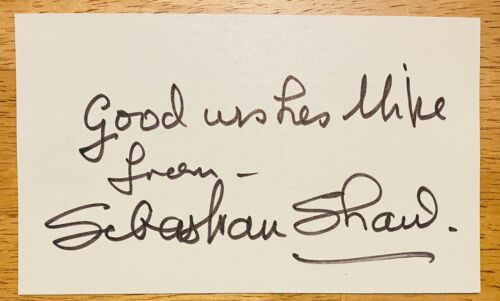 Good wishes Mike
from -
Sebastian Shaw.